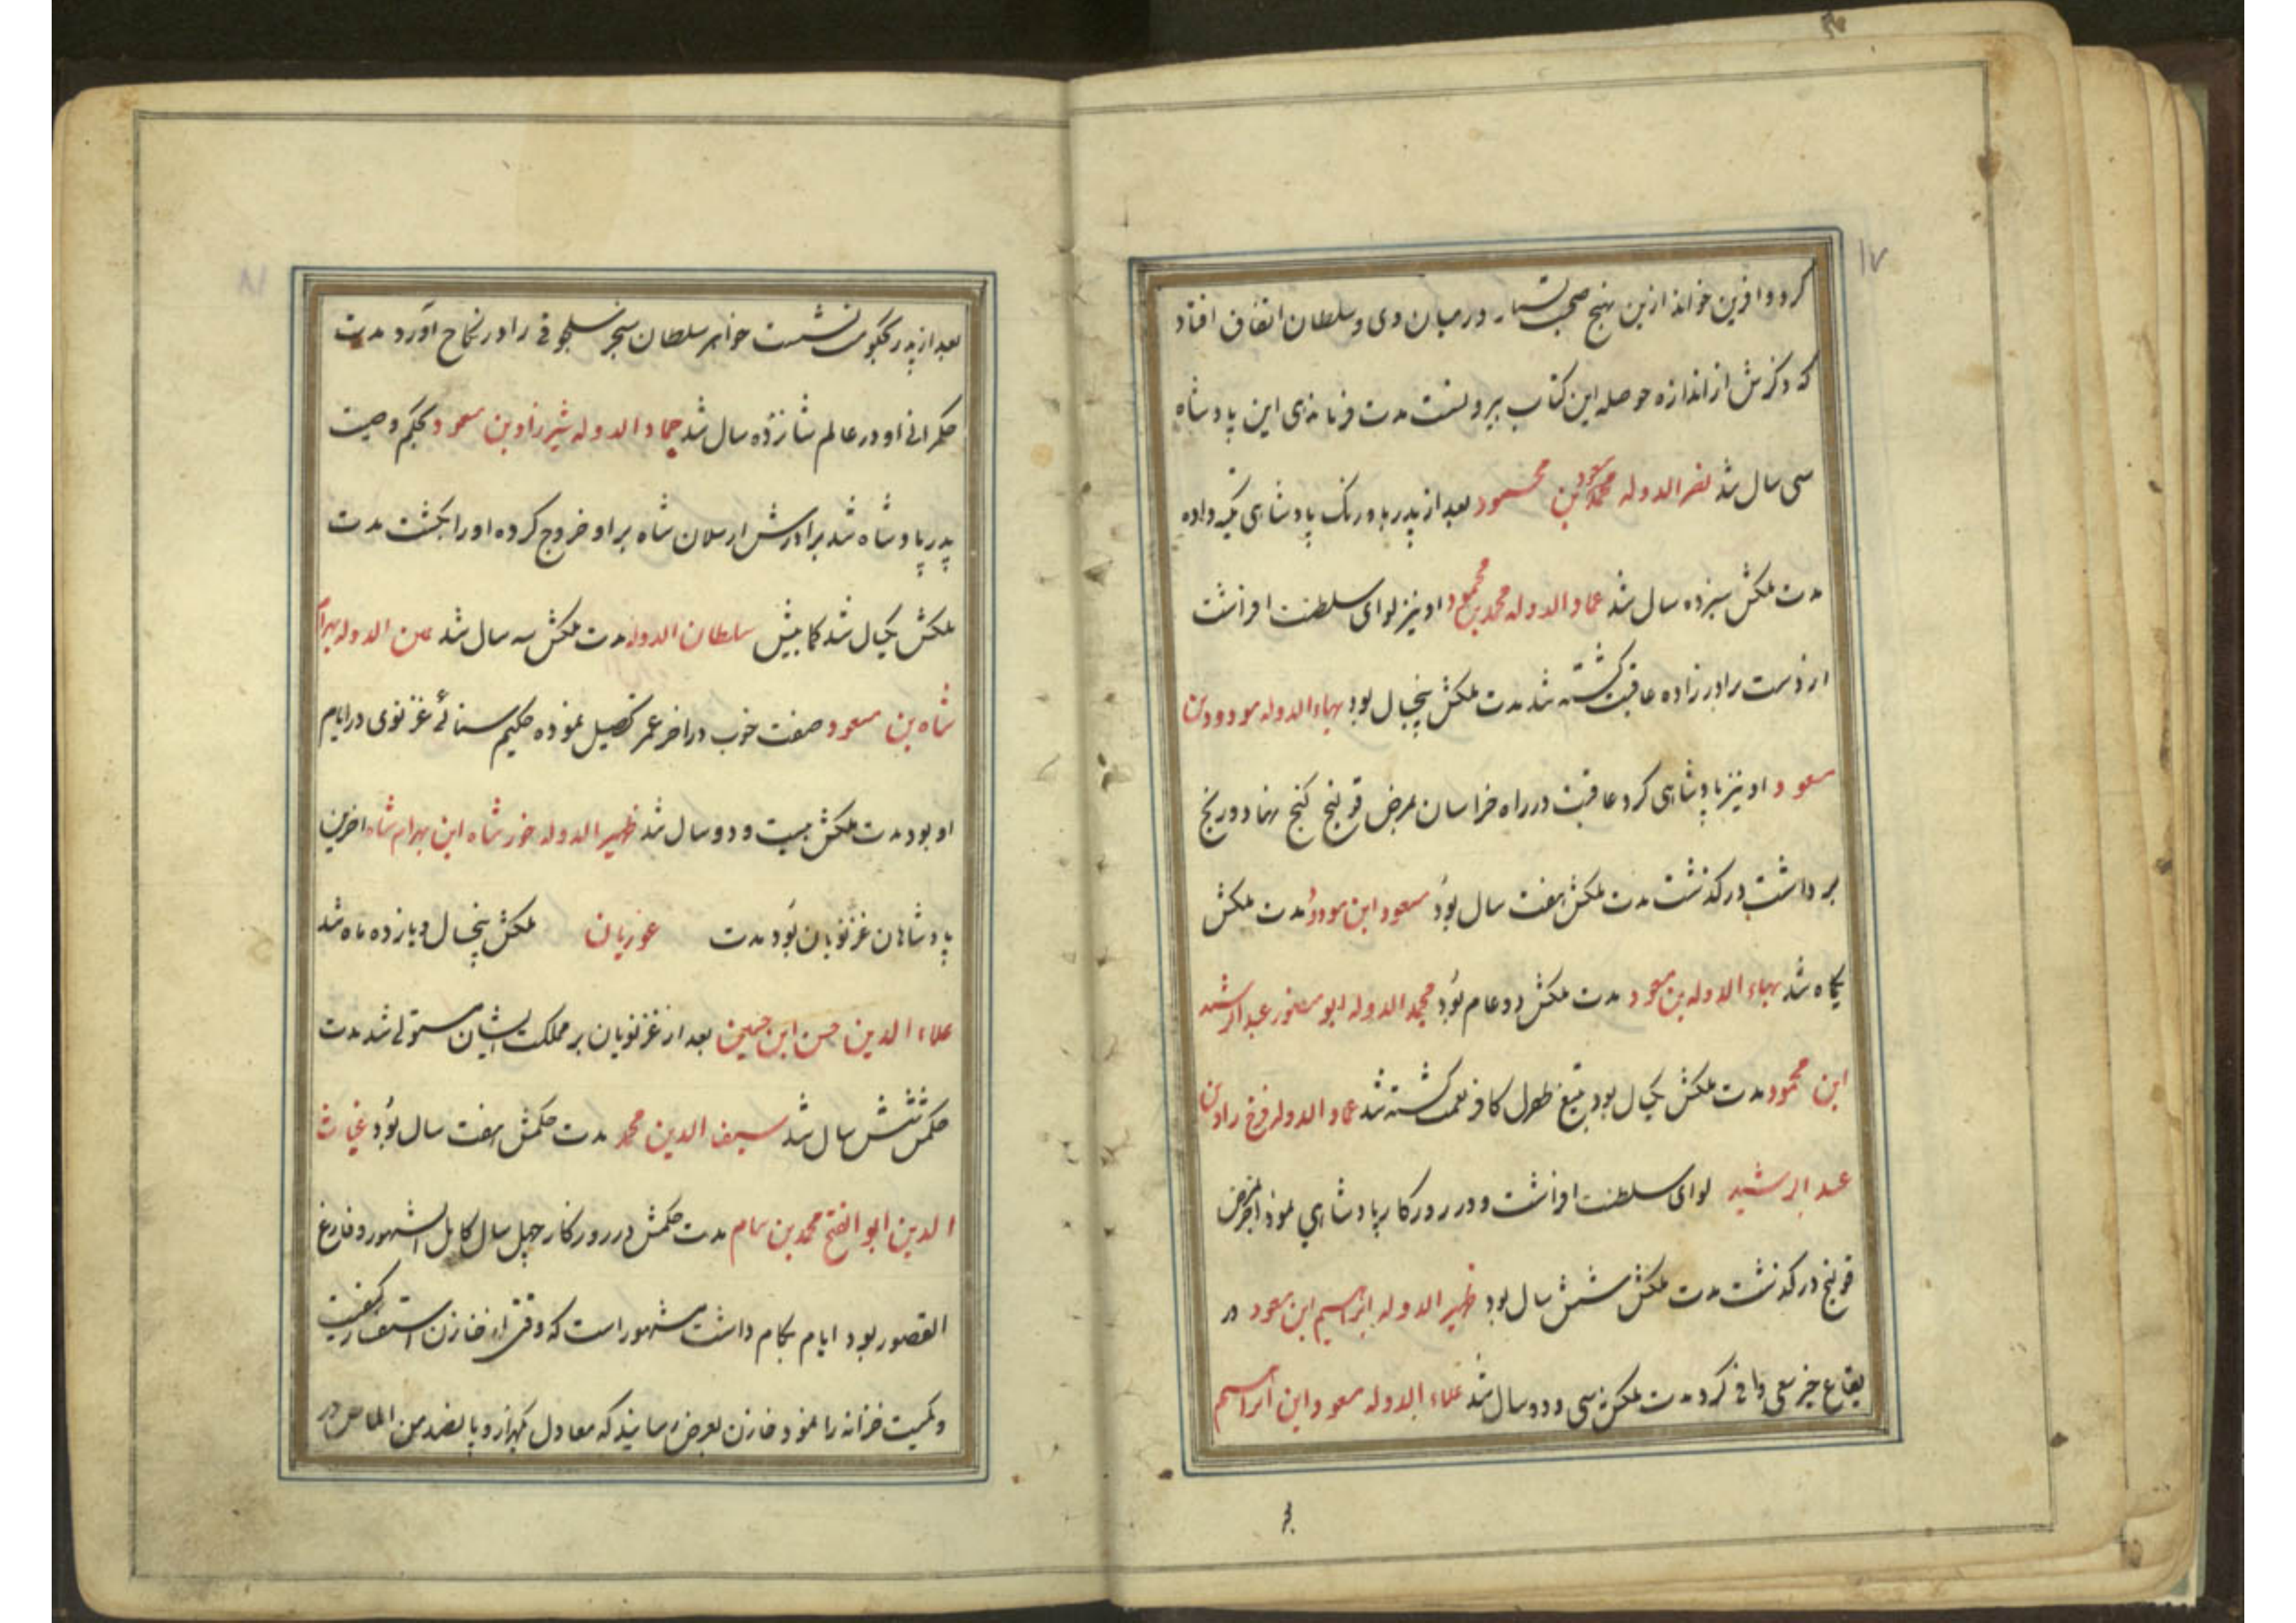 ۱۷
کرد و افرین خواند ازین نهج صحبت بسیار در میان وی و سلطان اتفاق افتاد
که ذکرش از اندازه حوصله این کتاب بیرونست مدت فرماندهی این پادشاه
سی سال شد نصر الدوله مسعود بن محمود بعد از پدر باورنک پادشاهی تکیه داده
مدت ملکش سیزده سال شد عماد الدوله محمد بن محمود او نیز لوای سلطنت افراشت
از دست برادرزاده عاقبت کشته شد مدت ملکش پنجسال بود بهاء الدوله مودود بن
مسعود او نیز پادشاهی کرد عاقبت در راه خراسان بمرض قولنج کنج نهاد و رنج
برداشت درکذشت مدت ملکش هفت سال بود مسعود ابن مودود مدت ملکش
یکماه شد بهاء الدوله بن مسعود مدت ملکش دو عام بود مجد الدوله ابو منصور عبد الرشید
ابن محمود مدت ملکش یکسال بود بتیغ طغرل کافر نعمت کشته شد عماد الدوله فرخ زاد بن
عبد الرشید لوای سلطنت افراشت و در روزکار پادشاهی نمود بمرض
قولنج درکذشت مدت ملکش شش سال بود ظهیر الدوله ابراهیم ابن مسعود در
بقاع خیر سعی وافی کرد مدت ملکش سی و دو سال شد علاء الدوله مسعود ابن ابراهیم
۱۸
بعد از پدر بحکومت نشست خواهر سلطان سنجر سلجوقی را در نکاح آورد مدت
حکمرانی او در عالم شانزده سال شد جماد الدوله شیرزاد بن مسعود بحکم وصیت
پدر پادشاه شد برادرش ارسلان شاه بر او خروج کرده او را بکشت مدت
ملکش یکسال شد کمابیش سلطان الدوله مدت ملکش سه سال شد یمن الدوله بهرام
شاه بن مسعود صفت خوب در اخر عمر تحصیل نموده حکیم سنائی غزنوی در ایام
او بود مدت ملکش بیست و دو سال شد ظهیر الدوله خسرو شاه ابن بهرام شاه اخرین
پادشاهان غزنویان بود مدت غوریان ملکش پنجسال و یازده ماه شد
علاء الدین حسن ابن حسین بعد از غزنویان بر مملکت ایشان مستولی شد مدت
حکمش شش سال شد سیف الدین محمد مدت حکمش هفت سال بود غیاث
الدین ابو الفتح محمد بن سام مدت حکمش در روزکار چهل سال کامل الشهور و فارغ
القصور بود ایام بکام داشت مشهور است که وقتی از خازن استفسار کیفیت
و کمیت خزانه را نمود خازن بعرض رسانید که معادل یکهزار و پانصد من الماس در